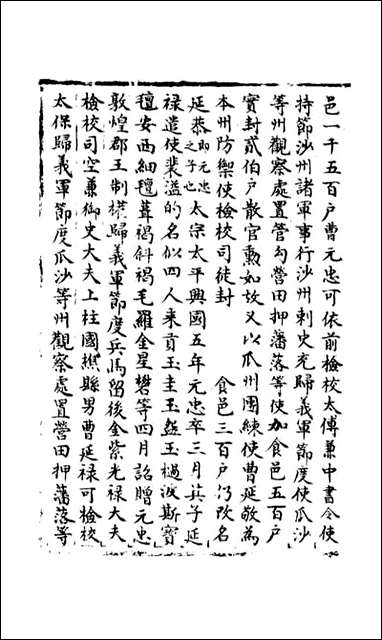 邑一千五百戶曹元忠可依前檢校太傅兼中書令使
持節沙州諸軍事行沙州刺史充歸義軍節度使瓜沙
等州觀察處置管勾營田押藩落等使加食邑五百戶
實封貳伯戶散官勳如故又以瓜州團練使曹延敬為
本州防禦使檢校司徒封 食邑三百戶仍改名
延恭即元忠之子也太宗太平興國五年元忠卒三月其子延
祿遣使裴溢的名似四人來貢玉圭玉盌玉檛波斯寶
氊安西細氊茸褐斜褐毛羅金星礬等四月詔贈元忠
敦煌郡王制權歸義軍節度兵馬留後金紫光祿大夫
檢校司空兼御史大夫上柱國譙縣男曹延祿可檢校
太保歸義軍節度瓜沙等州觀察處置營田押藩落等